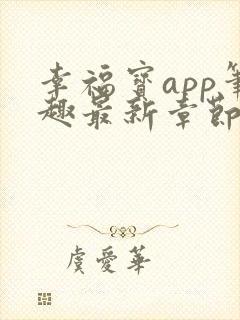 幸福寳app筆
趣最新章節
虞愛華